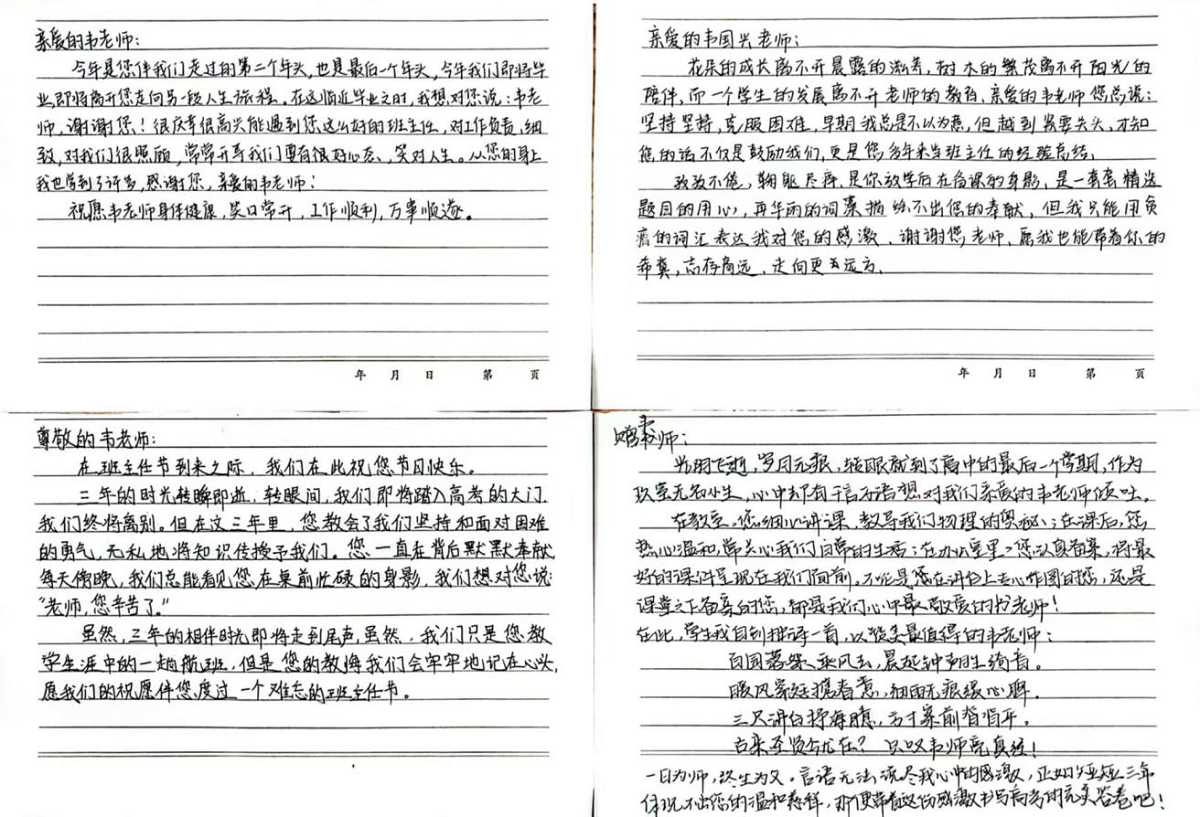 亲爱的韦老师：
今年是您伴我们走过的第二个年头，也是最后一个年头，今年我们即将毕
业，即将离开您走向另一段人生旅程。在这临近毕业之时，我想对您说：韦老
师，谢谢您！很庆幸很高兴能遇到您这么好的班主任，对工作负责，细
致，对我们很照顾，常常开导我们要有很好心态，笑对人生。从您的身上
我也学到了许多，感谢您，亲爱的韦老师！
祝愿韦老师身体健康，笑口常开，工作顺利，万事顺遂。
年 月 日 第 頁
亲爱的韦国兴老师：
花朵的成长离不开晨露的滋养，树木的繁茂离不开阳光的
陪伴，而一个学生的发展离不开老师的教育，亲爱的韦老师您总说：
坚持坚持，克服困难，早期我总是不以为然，但越到紧要关头，才知
您的话不仅是鼓励我们，更是您多年来当班主任的经验总结。
孜孜不倦，鞠躬尽瘁，是你放学后在备课的身影，是一套套精选
题目的用心，再华丽的词藻描绘不出您的奉献，但我只能用贫
瘠的词汇表达我对您的感激，谢谢您，老师，愿我也能带着你的
希冀，志存高远，走向更远方。
年 月 日 第 頁
尊敬的韦老师：
在班主任节到来之际，我们在此祝您节日快乐。
三年的时光转瞬即逝，转眼间，我们即将踏入高考的大门，
我们终将离别。但在这三年里，您教会了我们坚持和面对困难
的勇气，无私地将知识传授予我们。您一直在背后默默奉献
每天傍晚，我们总能看见您在桌前忙碌的身影，我们想对您说：
“老师，您辛苦了。”
虽然，三年的相伴时光即将走到尾声，虽然，我们只是您教
学生涯中的一趟航班，但是您的教悔我们会牢牢地记在心头，
愿我们的祝愿伴您度过一个难忘的班主任节。
韦老师：
光阴飞逝，岁月无痕，转眼就到了高中的最后一个学期，作为
无名小生，心中却有千言万语想对我们亲爱的韦老师倾吐。
在教室，您细心讲课，教导我们物理的奥秘；在课后，您
热心温和，常关心我们日常的生活；在办公室里，您认真备案，将最
好的课件呈现在我们面前。不论是您在讲台上专心作图的您，还是
课堂之下备案的您，都是我们心中最敬爱的韦老师！
在此，学生我自创拙诗一首，以赞美最值得的韦老师：
百国落，乘风去，晨起钟声生绮春。
暖风穿廷携春意，细雨无痕缓心脾。
三尺讲台抒海臆，方寸案前皆眉平。
古来圣贤今犹在？只叹韦师亮真经！
一日为师，终生为父。言语无法诉尽我心中的感激，正如短短三年
体现不出您的温和慈祥，那便带着这份感激书写高考的完美答卷吧！